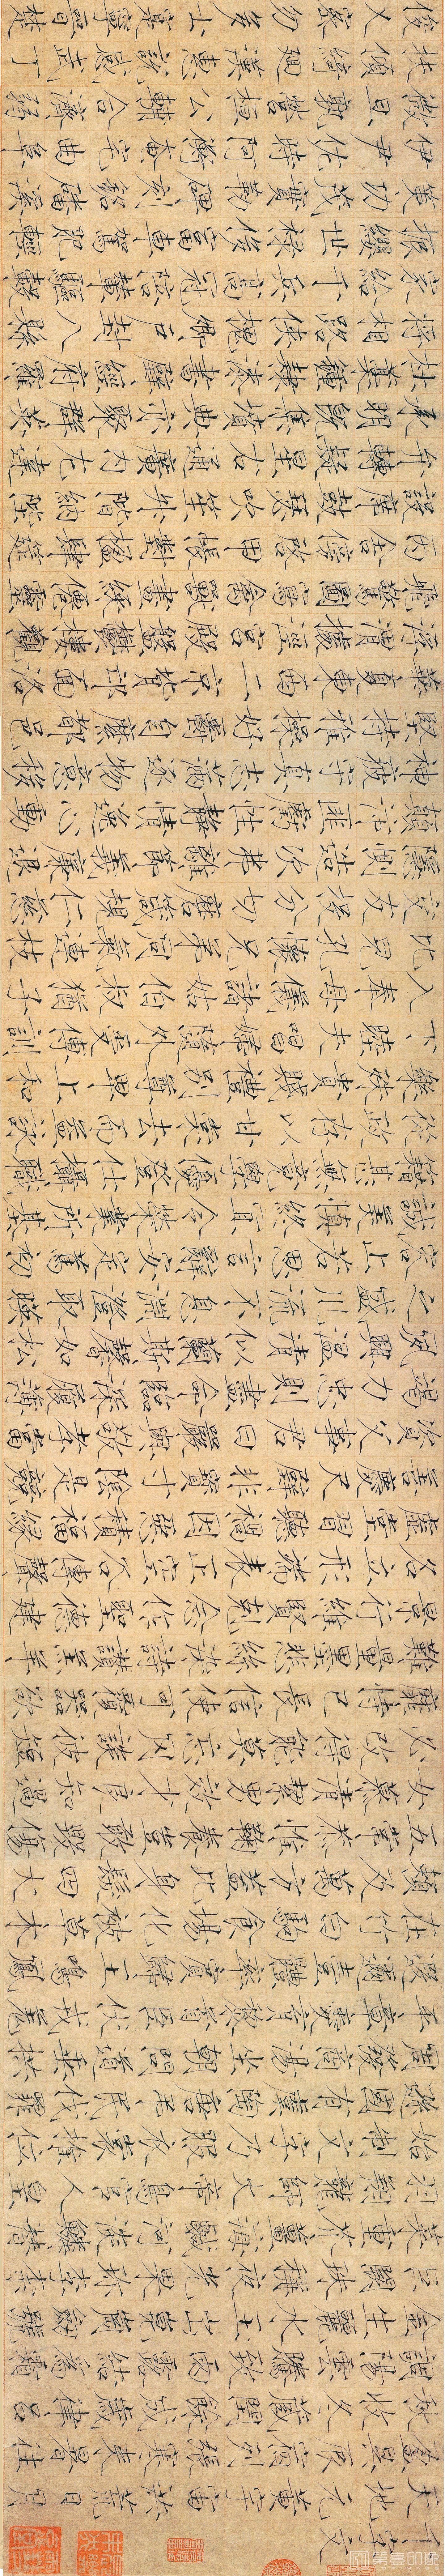 千字文
天地元黃宇宙洪荒日月
盈昃辰宿列張寒來暑往
秋收冬藏閏餘成歲律呂
調陽雲騰致雨露結為霜
金生麗水玉出崑崗劍號
巨闕珠稱夜光果珍李柰
菜重芥薑海鹹河淡鱗潛
羽翔龍師火帝鳥官人皇
始制文字乃服衣裳推位
遜國有虞陶唐弔民伐罪
周發商湯坐朝問道垂拱
平章愛育黎首臣伏戎羌
遐邇壹體率賓歸王鳴鳳
在竹白駒食場化被草木
賴及萬方蓋此身髮四大
五常恭惟鞠養豈敢毀傷
女慕清潔男效才良知過
必改得能莫忘罔談彼短
靡恃己長信使可覆器欲
難量墨悲絲淡詩讚羔羊
景行維賢克念作聖德建
名立形端表正空谷傳聲
虛堂習聽禍因惡積福緣
善慶尺璧非寶寸陰是競
資父事君曰嚴與敬孝當
竭力忠則盡命臨深履薄
夙興溫清似蘭斯馨如松
之盛川流不息淵澄取暎
容止若思言辭安定篤初
誠美慎終宜令榮業所基
籍甚無竟學優登仕攝職
從政存以甘棠去而益詠
樂殊貴賤禮別尊卑上和
下睦夫唱婦隨外受傅訓
入奉母儀諸姑伯叔猶子
比兒孔懷兄弟同氣連枝
交友投分切磨箴規仁慈
隱惻造次弗離節義廉退
顛沛匪虧性靜情逸心動
神疲守真志滿逐物意移
堅持雅操好爵自縻都邑
華夏東西二京背邙面洛
浮渭據涇宮殿盤鬱樓觀
飛驚圖寫禽獸畫綵仙靈
丙舍傍啟甲帳對楹肆筵
設席鼓瑟吹笙升階納陛
弁轉疑星右通廣內左達
承明既集墳典亦聚群英
杜稾鍾隸漆書壁經府羅
將相路俠槐卿戶封八縣
家給千兵高冠陪輦驅轂
振纓世祿侈富車駕肥輕
策功茂實勒碑刻銘磻溪
伊尹佐時阿衡奄宅曲阜
微旦孰營桓公輔合濟弱
扶傾綺迴漢惠說感武丁
俊乂密勿多士寔寧晉楚